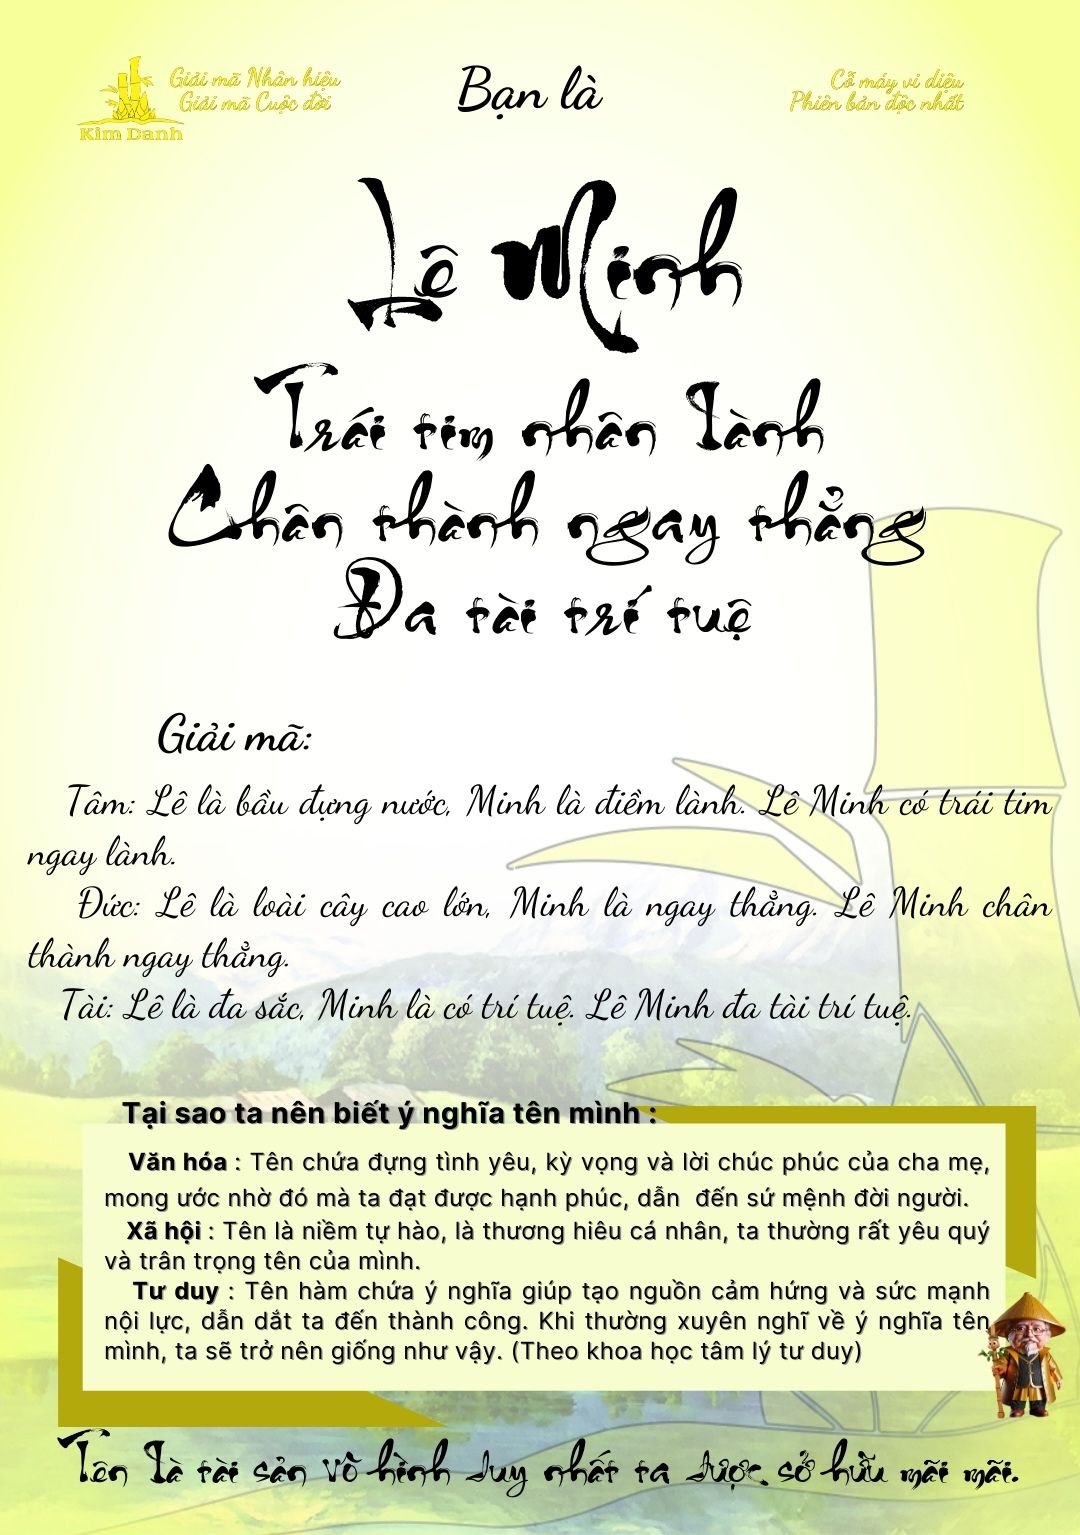 Giải mã Nhân hiệu
Giải mã Cuộc đời
Kim Danh
Bạn là
Cỗ máy vi diệu
Phiên bản độc nhất
Lê Minh
Trái tim nhân lành
Chân thành ngay thẳng
Đa tài trí tuệ
Giải mã:
Tâm: Lê là bầu đựng nước, Minh là điềm lành. Lê Minh có trái tim
ngay lành.
Đức: Lê là loài cây cao lớn, Minh là ngay thẳng. Lê Minh chân
thành ngay thẳng.
Tài: Lê là đa sắc, Minh là có trí tuệ. Lê Minh đa tài trí tuệ.
Tại sao ta nên biết ý nghĩa tên mình :
Văn hóa : Tên chứa đựng tình yêu, kỳ vọng và lời chúc phúc của cha mẹ,
mong ước nhờ đó mà ta đạt được hạnh phúc, dẫn đến sứ mệnh đời người.
Xã hội : Tên là niềm tự hào, là thương hiêu cá nhân, ta thường rất yêu quý
và trân trọng tên của mình.
Tư duy : Tên hàm chứa ý nghĩa giúp tạo nguồn cảm hứng và sức mạnh
nội lực, dẫn dắt ta đến thành công. Khi thường xuyên nghĩ về ý nghĩa tên
mình, ta sẽ trở nên giống như vậy. (Theo khoa học tâm lý tư duy)
Tên là tài sản vô hình duy nhất ta được sở hữu mãi mãi.